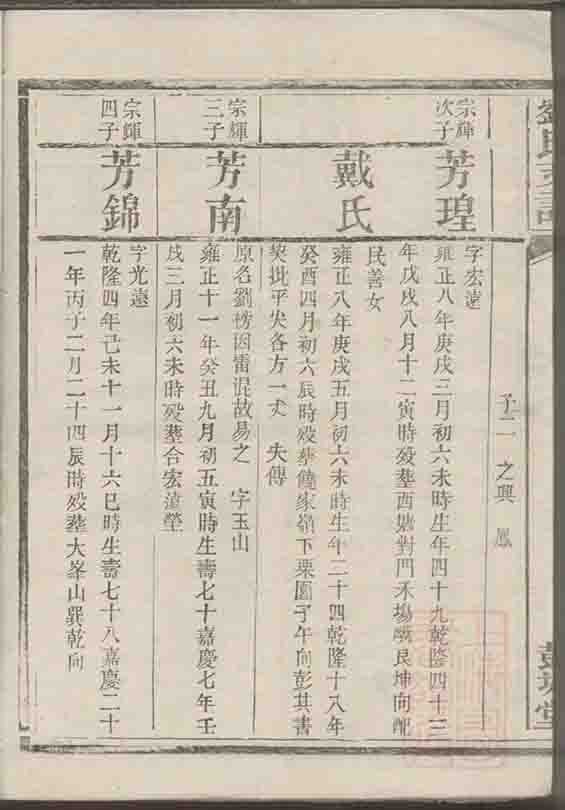 劉氏支譜
子二 之興 鳳
彭城堂
宗輝次子
芳瑝
字宏遠
雍正八年庚戌三月初六未時生年四十九乾隆四十三
年戊戌八月十二寅時歿葬酉塘對門禾場嘴艮坤向配
戴氏
民善女
雍正八年庚戌五月初六未時生年二十四乾隆十八年
癸酉四月初六辰時歿葬饒家嶺下栗園子午向彭其書
契批平尖各方一丈 失傳
宗輝三子
芳南
原名劉榜因雷混故易之 字玉山
雍正十一年癸丑九月初五寅時生壽七十嘉慶七年壬
戌三月初六未時歿葬合宏遠塋
宗輝四子
芳錦
字光遠
乾隆四年己未十一月十六巳時生壽七十八嘉慶二十
一年丙子二月二十四辰時歿葬大峯山巽乾向